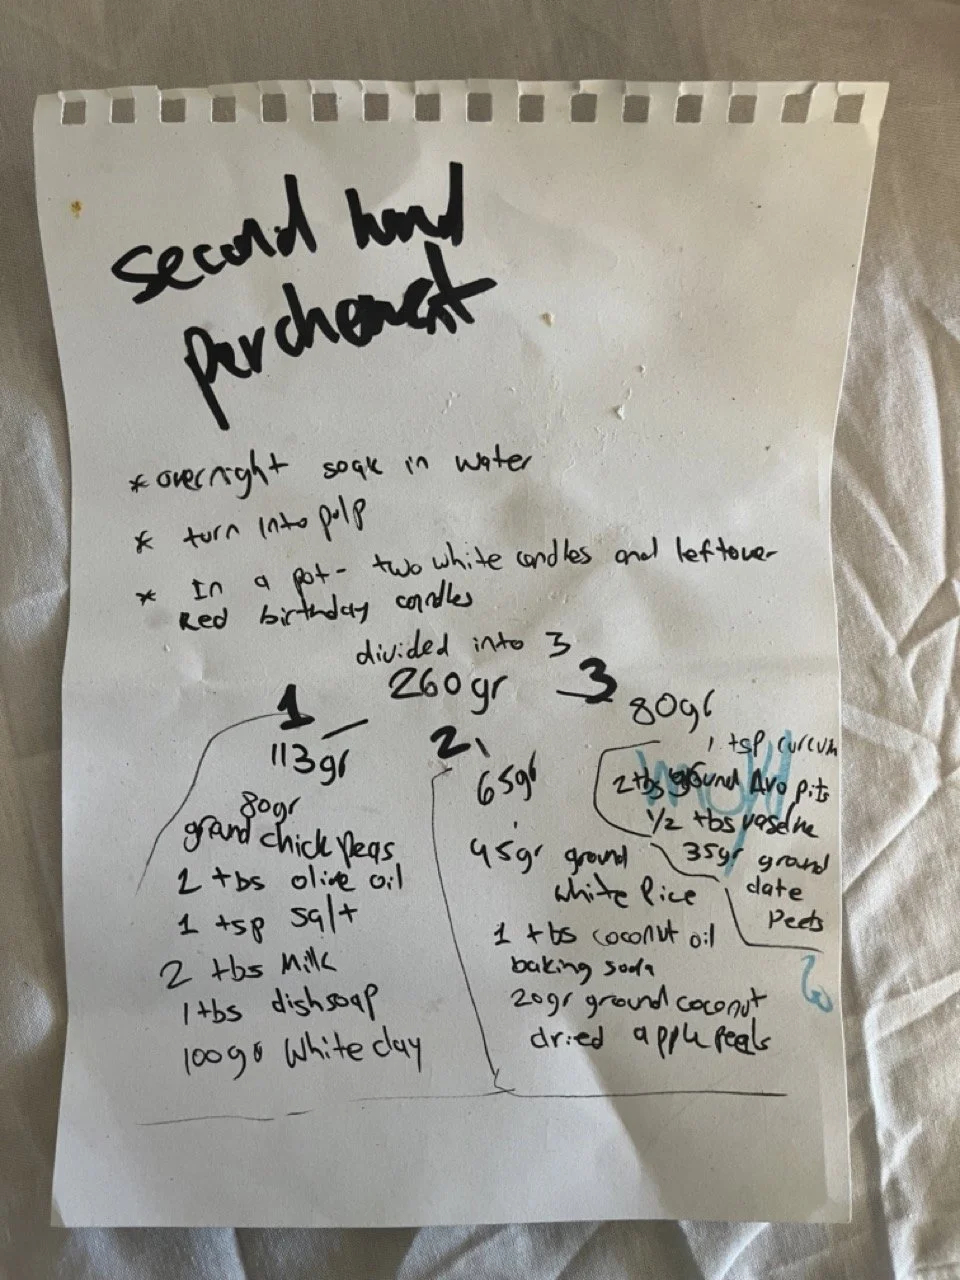 second hand
parchemat
* overnight soak in water
* turn into pulp
* In a pot - two white candles and leftover
Red birthday candles
divided into 3
260gr
1
113gr
80gr
grand chick peas
2 tbs olive oil
1 tsp salt
2 tbs Milk
1 tbs dishsoap
100gr White clay
2
65gr
45gr ground
white Rice
1 tbs coconut oil
baking soda
20gr ground coconut
dried apple peels
3
80gr
1 tsp curcum
2 tbs ground Avo pits
1/2 tbs vaseline
35gr ground
date
Peets